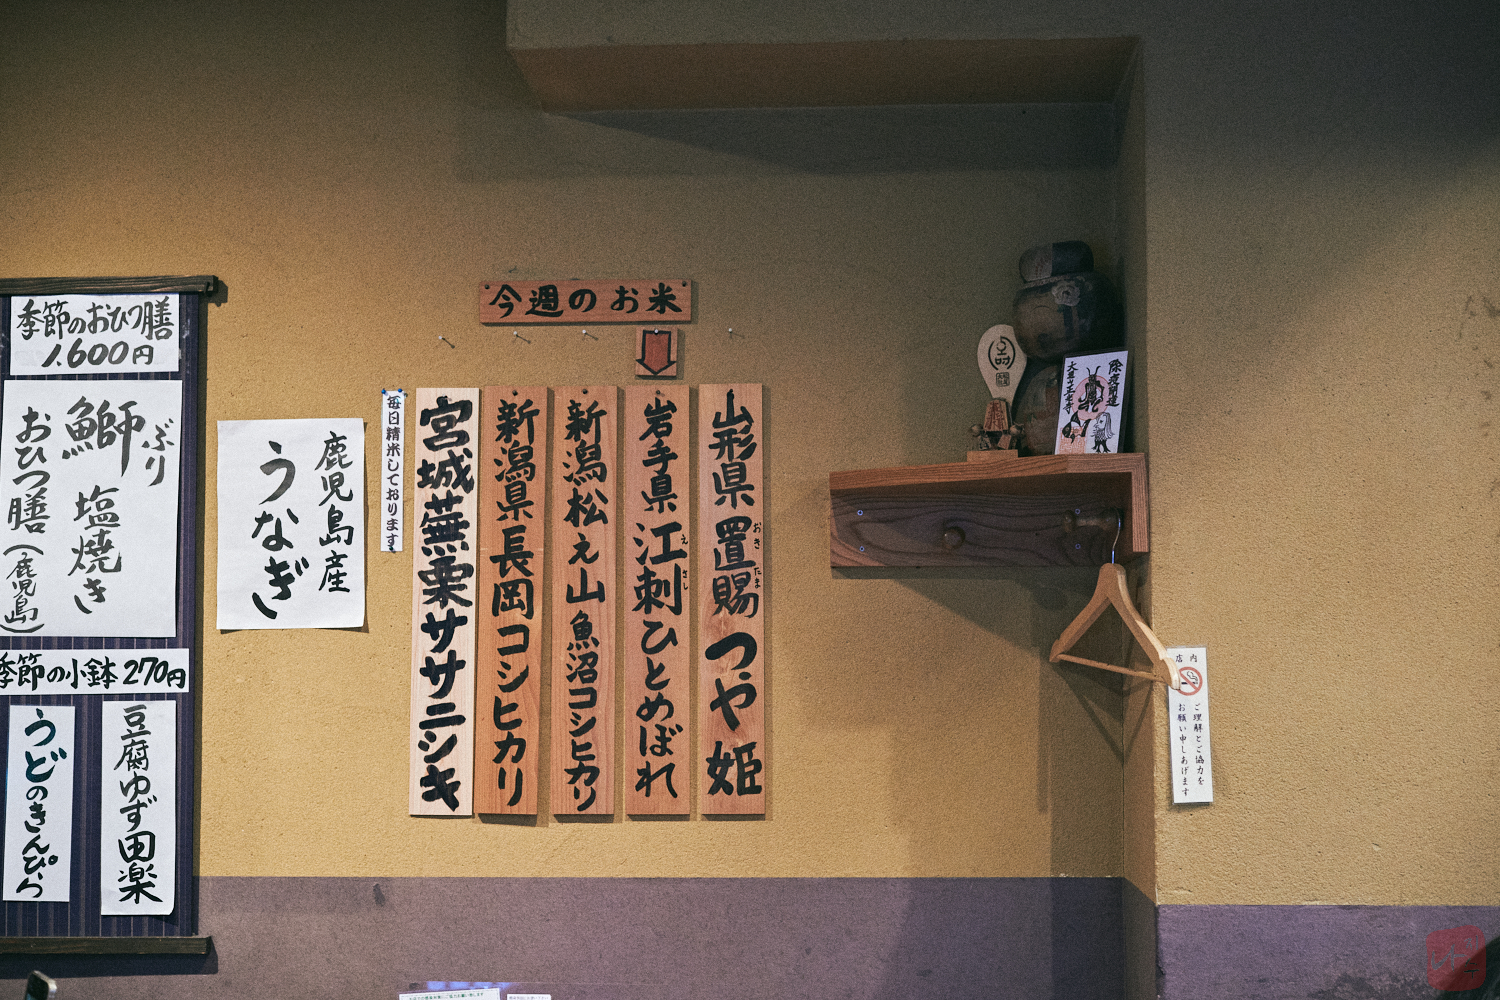 季節のおひつ膳
1,600円
ぶり
鰤 塩焼き
おひつ膳(鹿児島)
季節の小鉢 270円
豆腐ゆず田楽
うどのきんぴら
鹿児島産
うなぎ
毎日精米しております
今週のお米
山形県置賜つや姫
おきたま
岩手県江刺ひとめぼれ
えさし
新潟松え山魚沼コシヒカリ
新潟県長岡コシヒカリ
宮城蕪栗ササニシキ
店内
ご理解とご協力を
お願い申しあげます